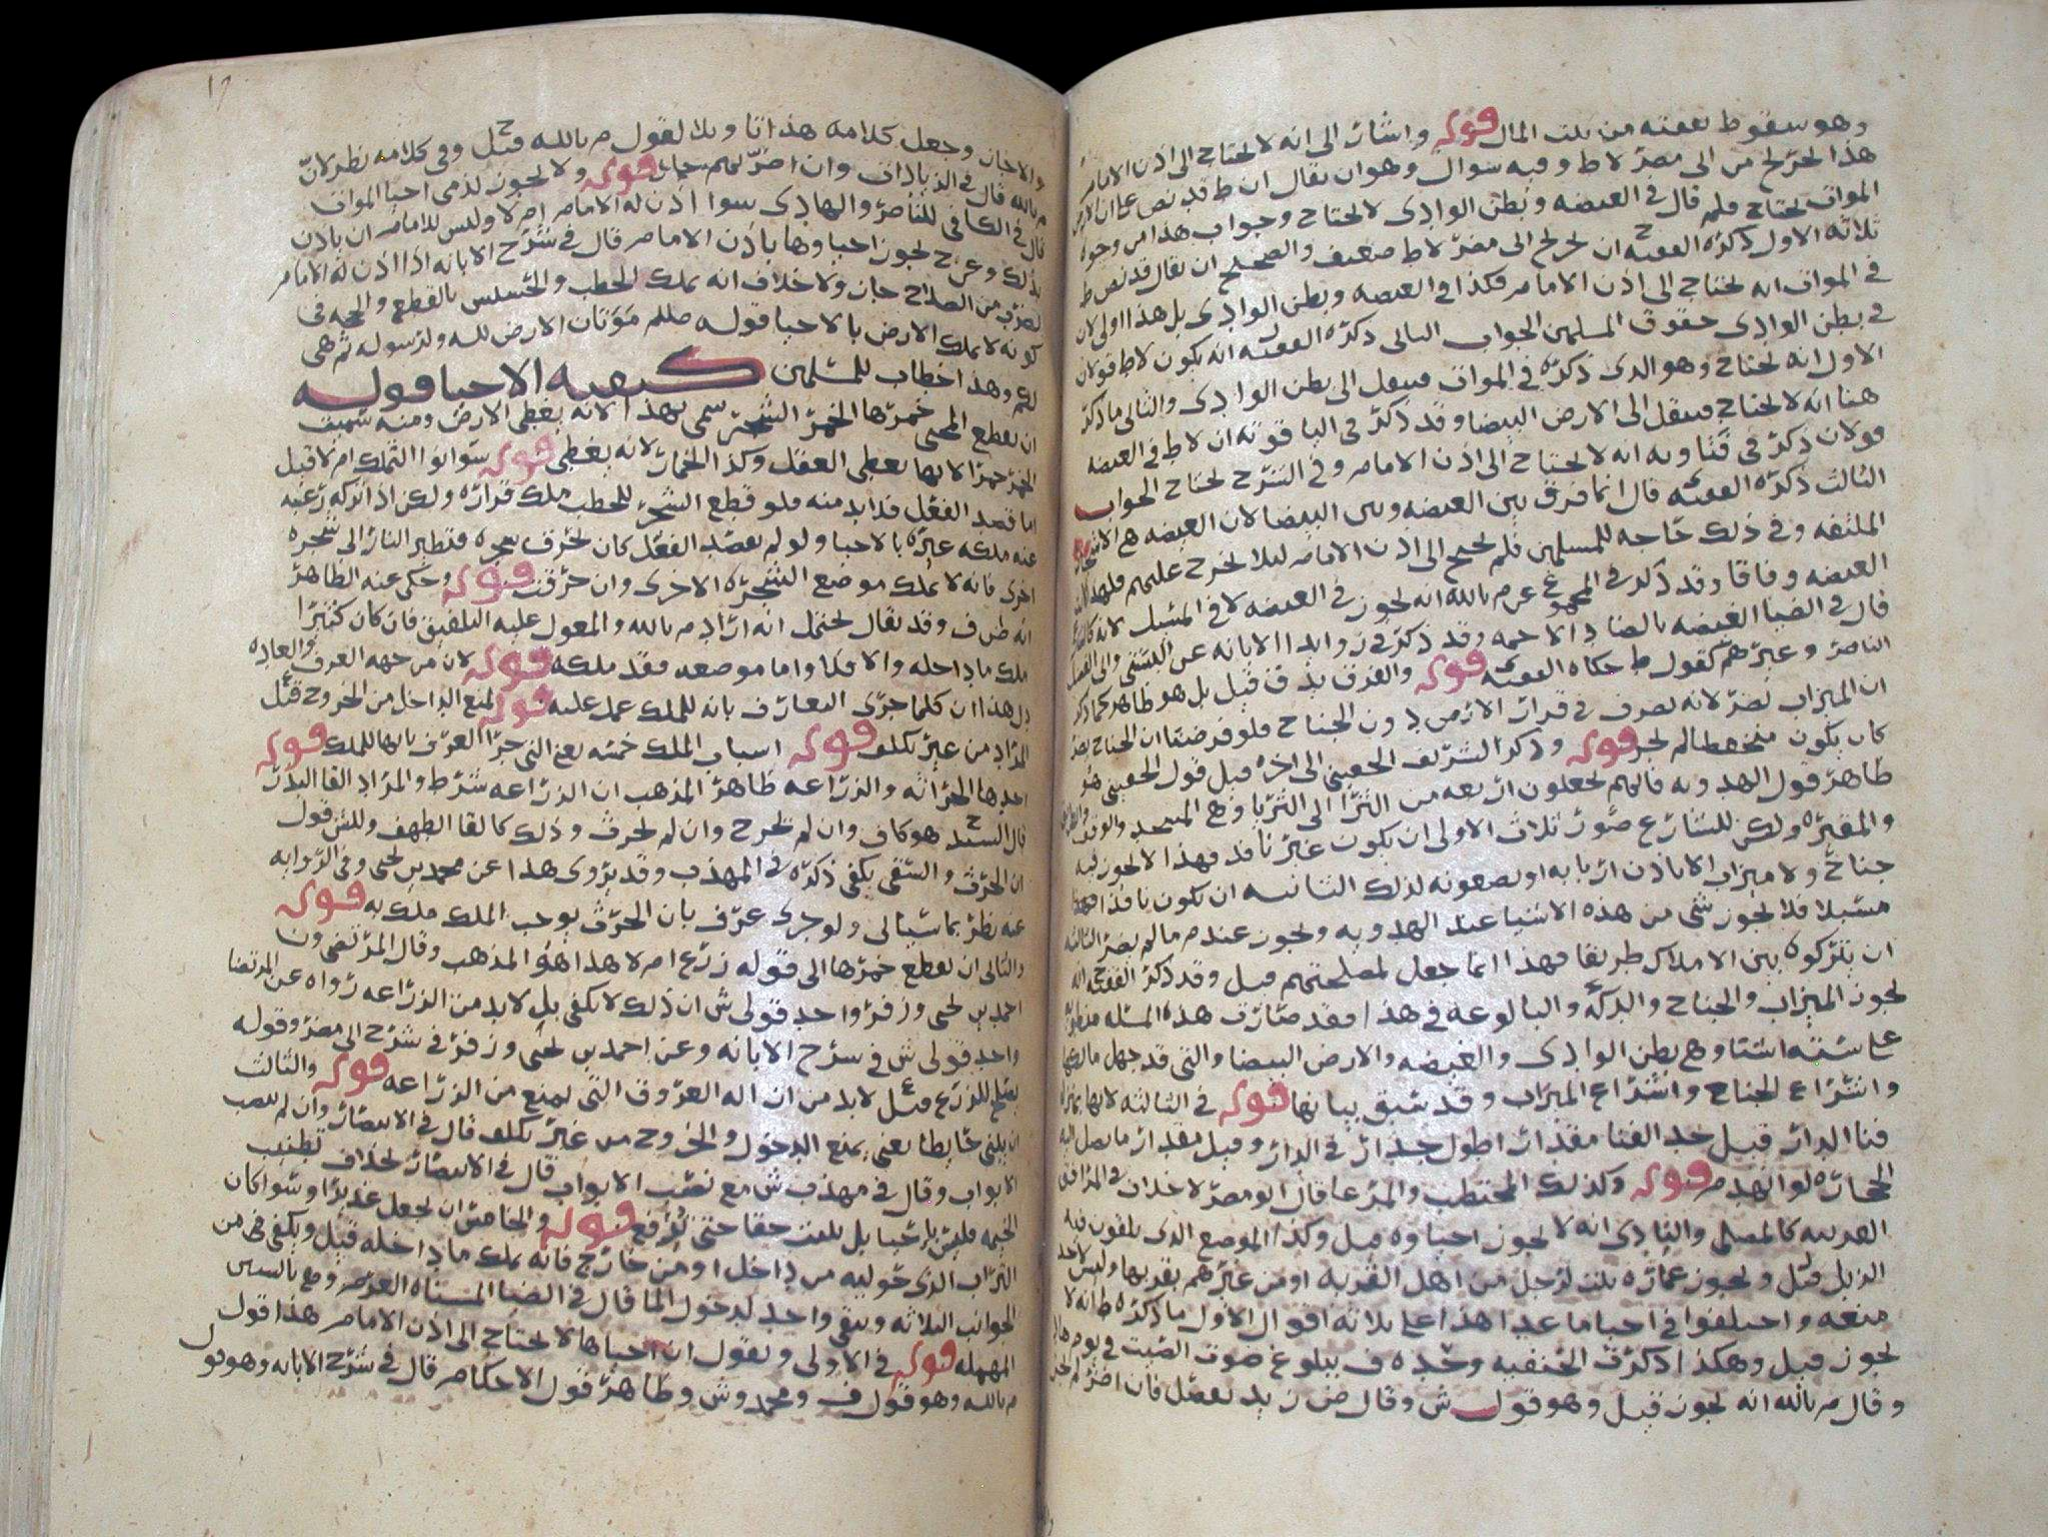 وهو سقوط نفقته من بيت المال قوله واشار الى انه لا يحتاج الى اذن الامام
هذا الخرلج من الى مضر لا ط وفيه سوال وهو ان يقال ان ط قد نص على ان الارض
الموات يحتاج فلم قال في الغيضه وبطن الوادى لا يحتاج وجواب هذا من وجوه
ثلاثه الاول ذكره الفقيه ح ان تخريج الى مضر لا ط ضعيف والصحيح ان يقال قد نص ط
في الموات انه يحتاج الى اذن الامام فكذا في الغيضه وبطن الوادى بل هذا اولى لان
في بطن الوادى حقوق المسلمين الجواب الثاني ذكره الفقيه انه يكون لا ط قولان
الاول انه يحتاج وهو الذي ذكره في الموات فينقل الى بطن الوادى والثاني ما ذكر
هنا انه لا يحتاج فينقل الى الارض البيضا وقد ذكر في الياقوته ان لا ط في الغيضه
قولان ذكر في فتاويه انه لا يحتاج الى اذن الامام وفي الشرح يحتاج الجواب
الثالث ذكره الفقيه قال انما فرق بين الغيضه وبين البيضا لان الغيضه هي الاشجار
الملتفه وفي ذلك حاجه للمسلمين فلم يحتج الى اذن الامام ليلا يخرج عليهم فلهذا
الغيضه وفاقا وقد ذكر في المجموع عن م بالله انه يجوز في الغيضه لا في المسيل
قال في الضيا الغيضه بالضاد الاجمه وقد ذكر في زوايد الابانه عن
الناصر وغيرهم كقول ط حكاه الفقيه قوله والفرق بدق قيل بل هو ظاهر كما ذكر
ان الميزاب يضر لانه يصرف في قرار الارض دون الجناح فلو فرضنا ان الجناح يضر
كان يكون منخفظا لم يجز قوله وذكر الشريف الحقيني الى اخره قيل قول الحقيني هو
ظاهر قول الهدويه فانهم يجعلون اربعه من الثرا الى الثريا وهي المسجد والوقف والطريق
والمقبره ولكن للشارع صور ثلاث الاولى ان يكون غير نافذ فهذا لا يجوز فيه
جناح ولا ميزاب الا باذن اربابه او يضعونه لذلك الثانيه ان يكون نافذا
مسبلا فلا يجوز شي من هذه الاشيا عند الهدويه ويجوز عند م ما لم يضر الثالثه
ان يتركوه بين الاملاك طريقا فهذا انما جعل لمصلحتهم قيل وقد ذكر الفقيه ح انه
يجوز الميزاب والجناح والدكه والبالوعه في هذا فقد صارت هذه المسئله
على سته اشيا وهي بطن الوادى والغيضه والارض البيضا والتي قد جهل مالكها
واشراع الجناح واشراع الميزاب وقد سبق بيانها قوله في الثالثه لانها بمنزله
فنا الدار قيل حد الفنا مقدار اطول جدار في الدار وقيل مقدار ما يصل اليه
الحجاره لو انهدم قوله وكذلك المحتطب والمرعا قال ابو مضر لا خلاف في المرافق
القريبه كالمصلى والنادى انه لا يجوز احياوه قيل وكذا الموضع الذى يلقون فيه
الزبل قيل ويجوز عماره بيت لرجل من اهل القريه او من غيرهم بقربها وليس لاحد
منعه واختلفوا في احيا ما عدا هذا على ثلاثه اقوال الاول ما ذكره ط انه لا
يجوز قيل وهكذا ذكرت الحنفيه وحده ف ببلوغ صوت الصيت في يوم هادٍ
وقال م بالله انه يجوز قيل وهو قول ش وقال ص زيد يفصل فان اضر لم يجز
والا جاز وجعل كلامه هذا تاويلا لقول م بالله قيل ح وفي كلامه نظر لان
م بالله قال في الزيادات وان اضر بهم جاز قوله ولا يجوز لذمي احيا الموات
قال في الكافي للناصر والهادى سوا اذن له الامام ام لا وليس للامام ان ياذن
بذلك وعن ح يجوز احياوها باذن الامام قال في شرح الابانه اذا اذن له الامام
لضرب من الصلاح جاز ولا خلاف انه يملك الحطب والحشيش بالقطع والحجه في
كونه لا يملك الارض بالاحيا قوله صللم موتان الارض لله ولرسوله ثم هي
لكم وهذا خطاب للمسلمين كيفيه الاحيا قوله
ان يقطع المحيي خمرها الخمر الشجر سمى بهذا لانه يغطى الارض ومنه سميت
الخمر خمرا لانها تغطى العقل وكذا الخمار لانه يغطى قوله سوا نوا التملك ام لا قيل
اما قصد الفعل فلا بد منه فلو قطع الشجر للحطب ملك قراره ولكن اذا تركه رغبه
عنه ملكه غيره بالاحيا ولو لم يقصد الفعل كان يحرق شجره فتطير النار الى شجره
اخرى فانه لا يملك موضع الشجره الاخرى وان حرقت قوله وحكي عنه الظاهر
انه ض ف وقد يقال يحتمل انه اراد م بالله والمعول عليه التلفيق فان كان كثيرا
ملك ما داخله والا فلا واما موضعه فقد ملكه قوله لان من جهه العرف والعاده
دل هذا ان كلما جرى التعارف بانه للملك عمل عليه قوله لمنع الداخل من الخروج قيل
المراد من غير تكلف قوله اسباب الملك خمسه يعني التي جرا العرف بانها للملك قوله
احدها الحراثه والزراعه ظاهر المذهب ان الزراعه شرط والمراد القا البذر
قال السيد ح هو كاف وان لم يخرج وان لم يحرث وذلك كالقا الطهف وللش قول
ان الحرث والسقى يكفي ذكره في المهذب وقد يروى هذا عن محمد بن يحيى وفي الروايه
عنه نظر بما سياتي ولو جرى عرف بان الحرث يوجب الملك ملك به قوله
والثاني ان يقطع خمرها الى قوله زرع ام لا هذا هو المذهب وقال المرتضى ون
احمد بن يحيى وزفر واحد قولى ش ان ذلك لا يكفي بل لابد من الزراعه رواه عن المرتضا
واحد قولى ش في شرح الابانه وعن احمد بن يحيى وزفر في شرح الى مضر وقوله
يصلح للزرع قيل لابد من ازاله العروق التي تمنع من الزراعه قوله والثالث
ان يبنى حايطا يعني يمنع الدخول والخروج من غير تكلف قال في الانتصار وان لم ينصب
الابواب وقال في مهذب ش مع نصب الابواب قال في الانتصار بخلاف تطنيب
الخيمه فليس باحيا بل يثبت حقا حتى ترفع قوله والخامس ان يجعل غديرا وسوا كان
التراب الذى حواليه من داخل او من خارج فانه يملك ما داخله قيل ويكفي في من
الجوانب الثلاثه ويبقى واحد لدخول الما قال في الضيا المسناه العرم وهي بالسين
المهمله قوله في الاولى ونقول ان احياها لا يحتاج الى اذن الامام هذا قول
م بالله وهو قول ف ومحمد وش وظاهر قول الاحكام قال في شرح الابانه وهو قول